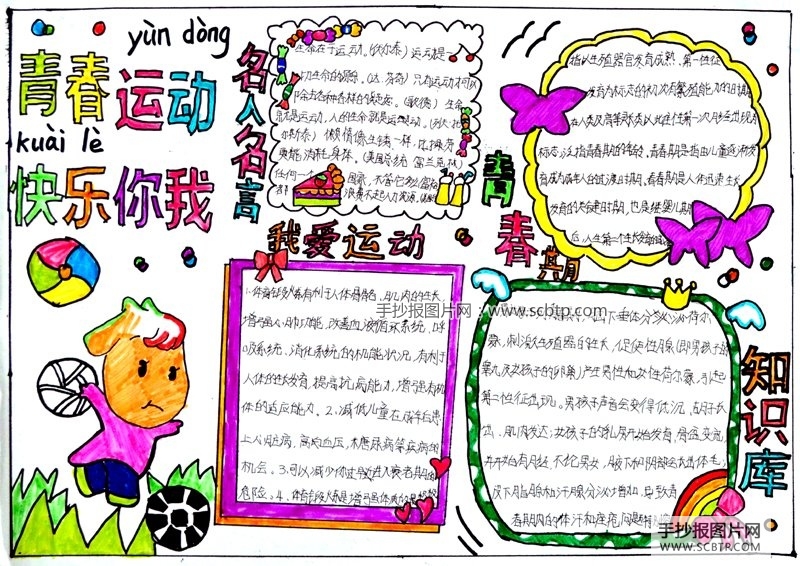 yùn dòng
青春运动
kuài lè
快乐你我
名人名言
生命在于运动。(伏尔泰) 运动是一
切生命的源泉。(达·芬奇) 只有运动才可以
除去各种各样的疑虑。(歌德) 生命
就是运动,人的生命就是运动。(列夫·托
尔斯泰) 懒惰像生锈一样,比操劳
更能消耗身体。(美国总统 富兰克林)
任何一个
国家,不管它多么富裕
浪费不起人力资源。
青春期
指以生殖器官发育成熟、第一性征
发育为标志的初次有繁殖能力的时期
在人类及高等灵长类以雌性第一次月经出现为
标志,泛指青春期的年龄。青春期是指由儿童逐渐发
育成为成年人的过渡时期。青春期是人体迅速生长
发育的关键时期,也是继婴儿期
后,人生第二个生长发育的
我爱运动
1.体育锻炼有利于人体骨骼、肌肉的生长,
增强心肺功能,改善血液循环系统、呼
吸系统、消化系统的机能状况,有利于
人体的生长发育,提高抗病能力,增强有机
体的适应能力。2、减低儿童在成年后患
上心脏病,高血压,糖尿病等疾病的
机会。3.可以减少你过早进入衰老期的
危险。4、体育锻炼是增强体质的
知识库
下垂体分泌荷尔
蒙,刺激生殖器的生长,促使性腺(即男孩子的
睾丸及女孩子的卵巢)产生男性和女性荷尔蒙,引起
第二性征出现。男孩子声音会变得低沉,胡子长
出,肌肉发达;女孩子的乳房开始发育,骨盆变宽,
并开始有月经。不论男女,腋下和阴部会长出体毛;
皮下脂肪和汗腺分泌增加,导致青
春期内的体汗和痤疮问题
手抄报图片网:www.scbtp.com
手抄报图片网
WWW.SCBTP.COM